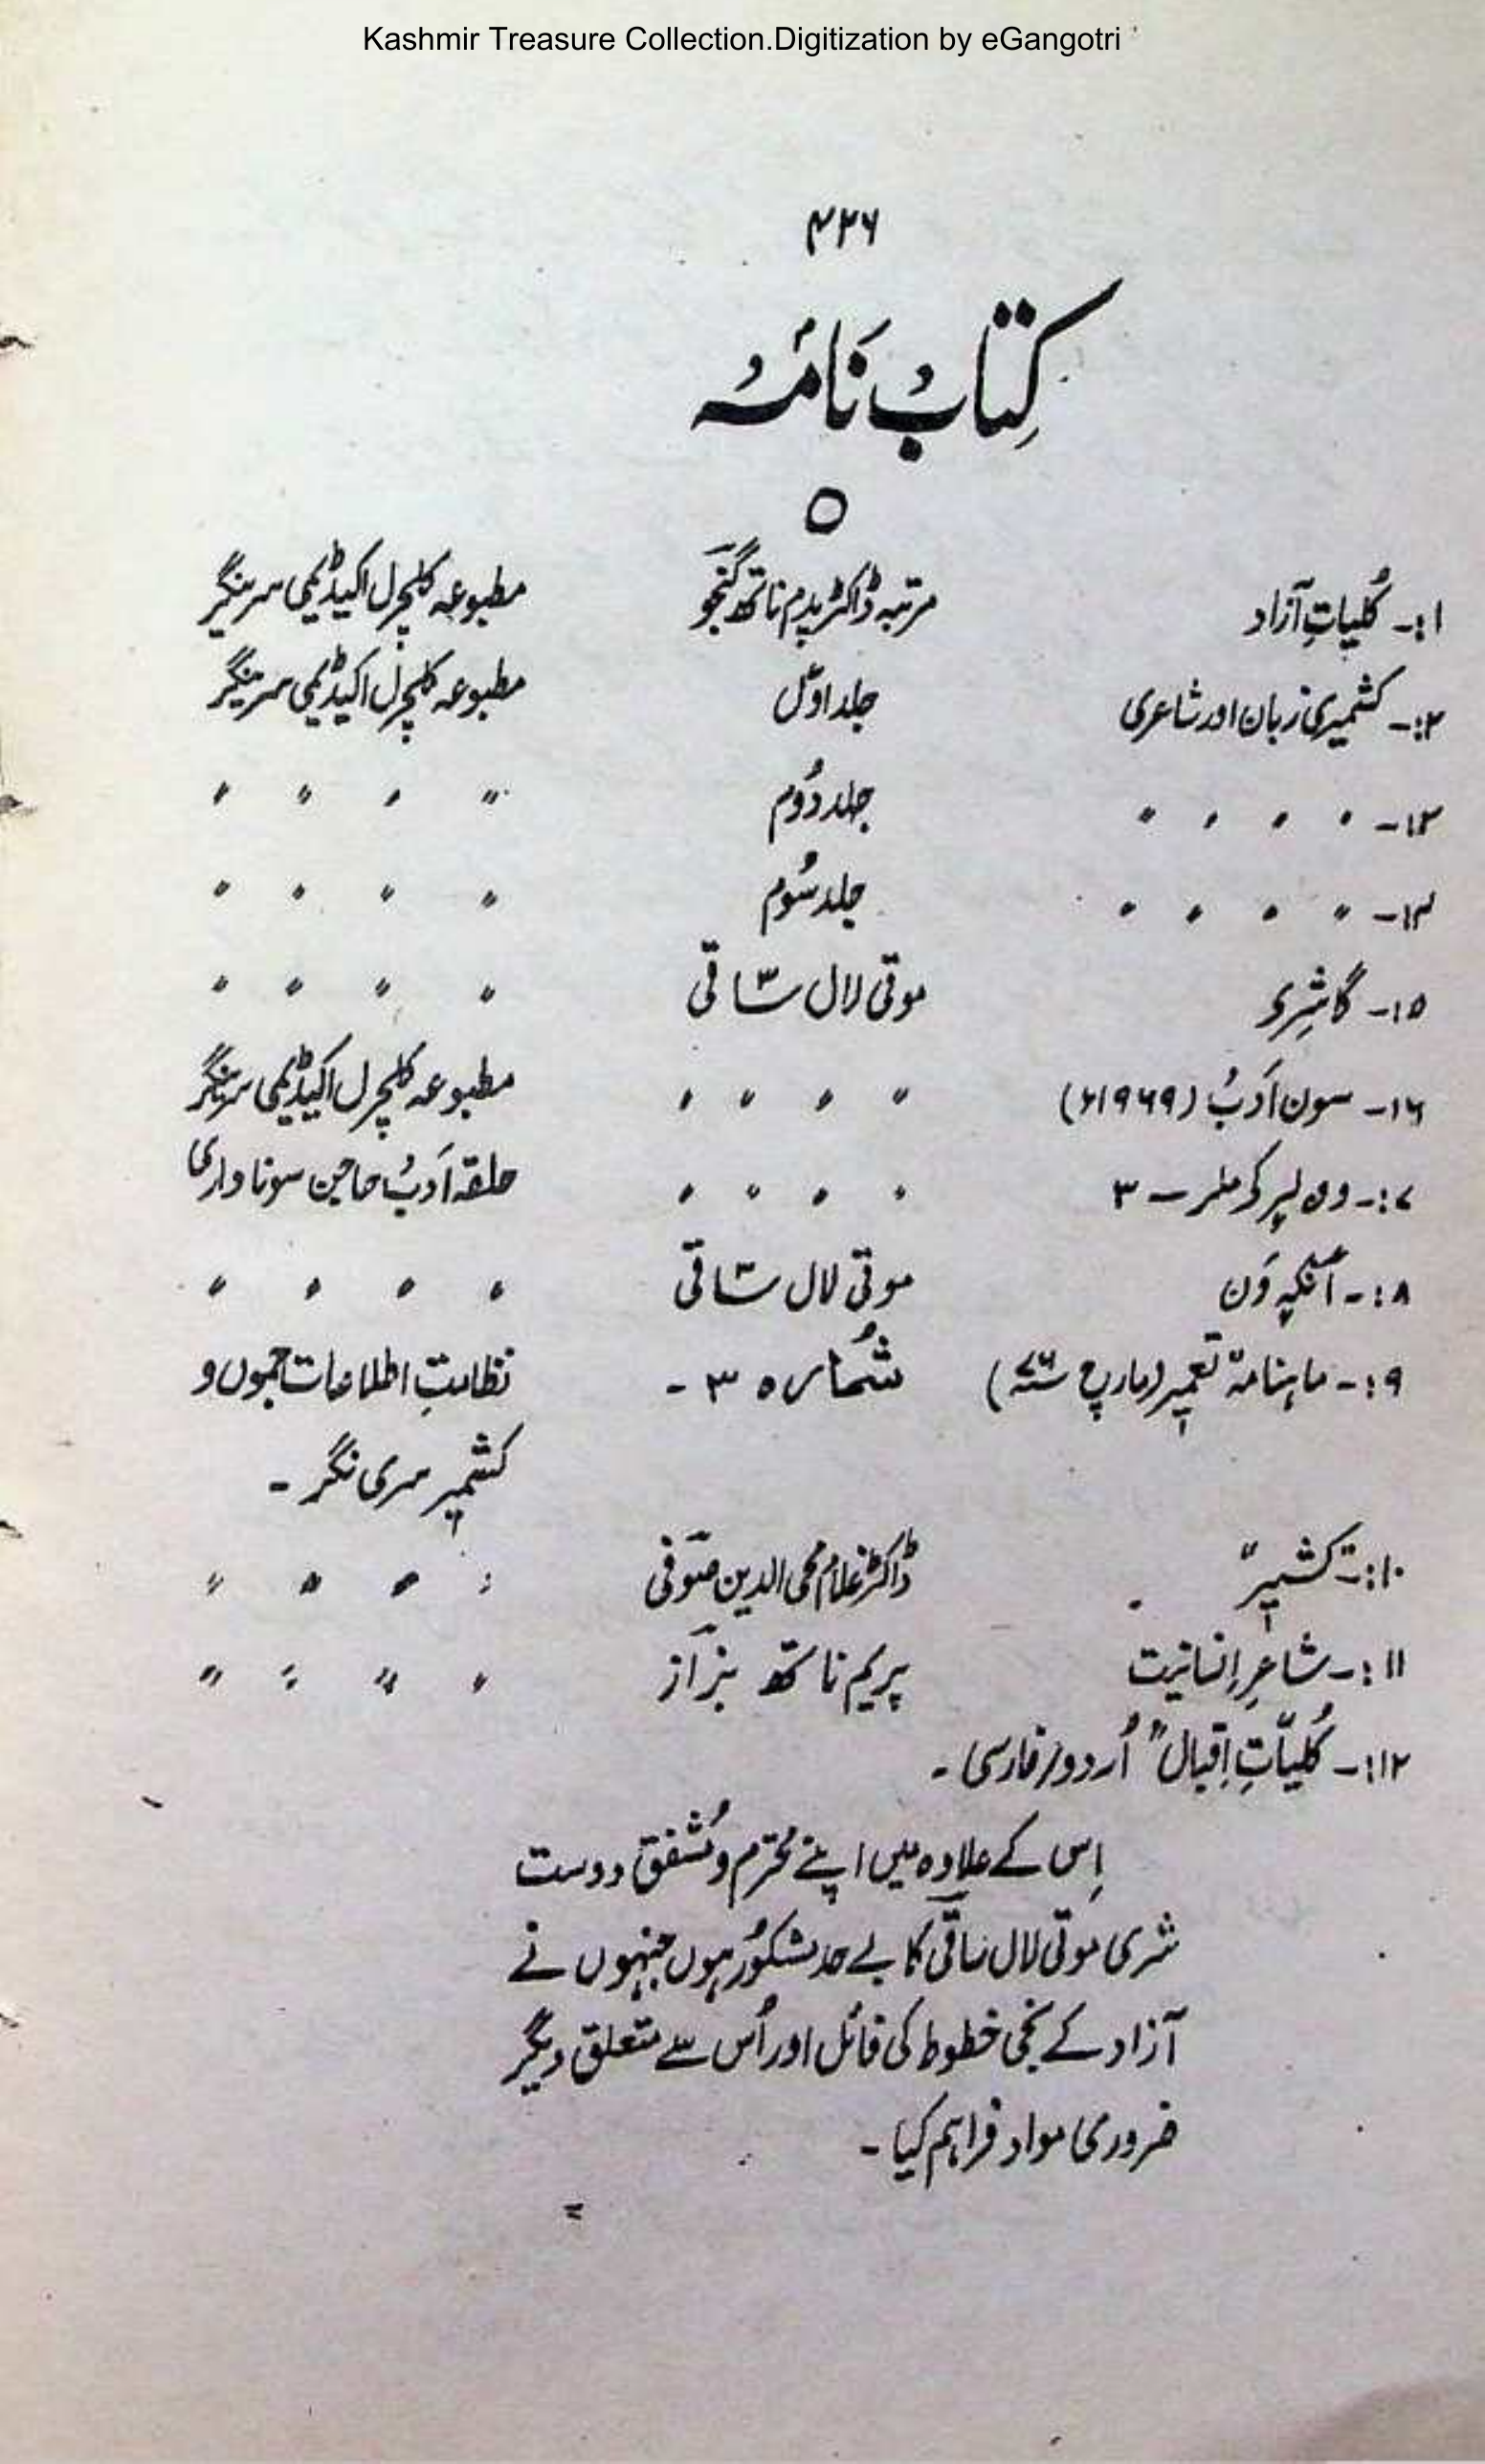 Kashmir Treasure Collection.Digitization by eGangotri
۴۲۶
کِتابُ نَامۂ
۱:- کُلیاتِ آزاد مرتبہ ڈاکٹر پدم ناتھ گنجو مطبوعہ کلچرل اکیڈیمی سرینگر
۲:- کشمیری زبان اور شاعری جلد اوّل مطبوعہ کلچرل اکیڈیمی سرینگر
۳:- 〃 〃 〃 〃 جلد دُوم 〃 〃 〃 〃
۴:- 〃 〃 〃 〃 جلد سُوم 〃 〃 〃 〃
۵:- گاشِرۍ موتی لال ساقی 〃 〃 〃 〃
۶:- سون اَدبُ (۱۹۶۹ء) 〃 〃 〃 〃 مطبوعہ کلچرل اکیڈیمی سرینگر
۷:- ۳ 〃 〃 〃 〃 حلقہ اَدبُ حاجن سوناواری
۸:- وَن موتی لال ساقی 〃 〃 〃 〃
۹:- ماہنامہ تعمیر (مارچ) شُمارہ ۳ - نظامتِ اطلاعات جموں و
کشمیر سری نگر -
۱۰:- "کشمیر" ڈاکٹر غلام محی الدین صوفی 〃 〃 〃 〃
۱۱:- شاعرِ اِنسانیت پریم ناتھ بزاز 〃 〃 〃 〃
۱۲:- کُلیّاتِ اِقبال" اُردو/فارسی -
اِس کے علاوہ میں اپنے محترم و مُشفق دوست
شری موتی لال ساقی کا بے حد مشکُور ہوں جنہوں نے
آزاد کے نجی خطوط کی فائل اور اُس سے متعلق دیگر
ضروری مواد فراہم کیا -
=